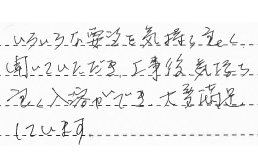 いろいろな要望を気持ち良く
聞いていただき、工事後気持ち
良く入浴ができ大変満足
しています。